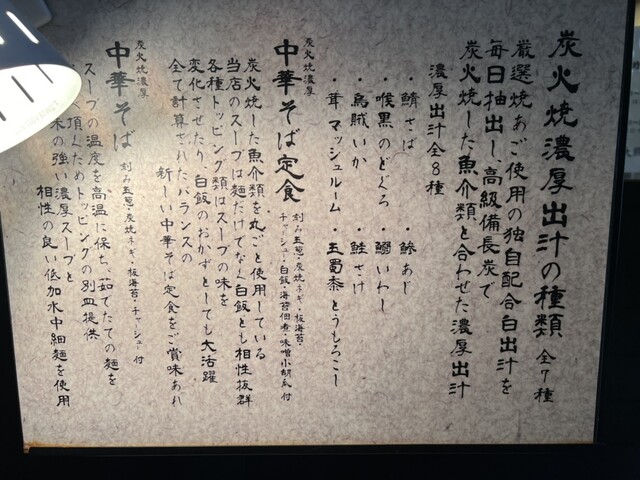 炭火焼濃厚出汁の種類 全7種
厳選焼あご使用の独自配合白出汁を
毎日抽出し、高級備長炭で
炭火焼した魚介類と合わせた濃厚出汁
濃厚出汁全8種
・鯖さば ・鯵あじ
・喉黒のどぐろ ・鰯いわし
・烏賊いか ・鮭さけ
・茸マッシュルーム ・玉蜀黍とうもろこし
炭火焼濃厚
中華そば定食
刻み玉葱・炭焼ネギ・板海苔・
チャーシュー・白飯・海苔佃煮・味噌小胡瓜 付
炭火焼した魚介類を丸ごと使用している
当店のスープは麺だけでなく白飯とも相性抜群
各種トッピング類はスープの味を
変化させたり、白飯のおかずとしても大活躍
全て計算されたバランスの
新しい中華そば定食をご賞味あれ
炭火焼濃厚
中華そば 刻み玉葱・炭焼ネギ・板海苔・チャーシュー 付
スープの温度を高温に保ち、茹でたての麺を
頂くためトッピングの別皿提供
味の強い濃厚スープと
相性の良い低加水中細麺を使用